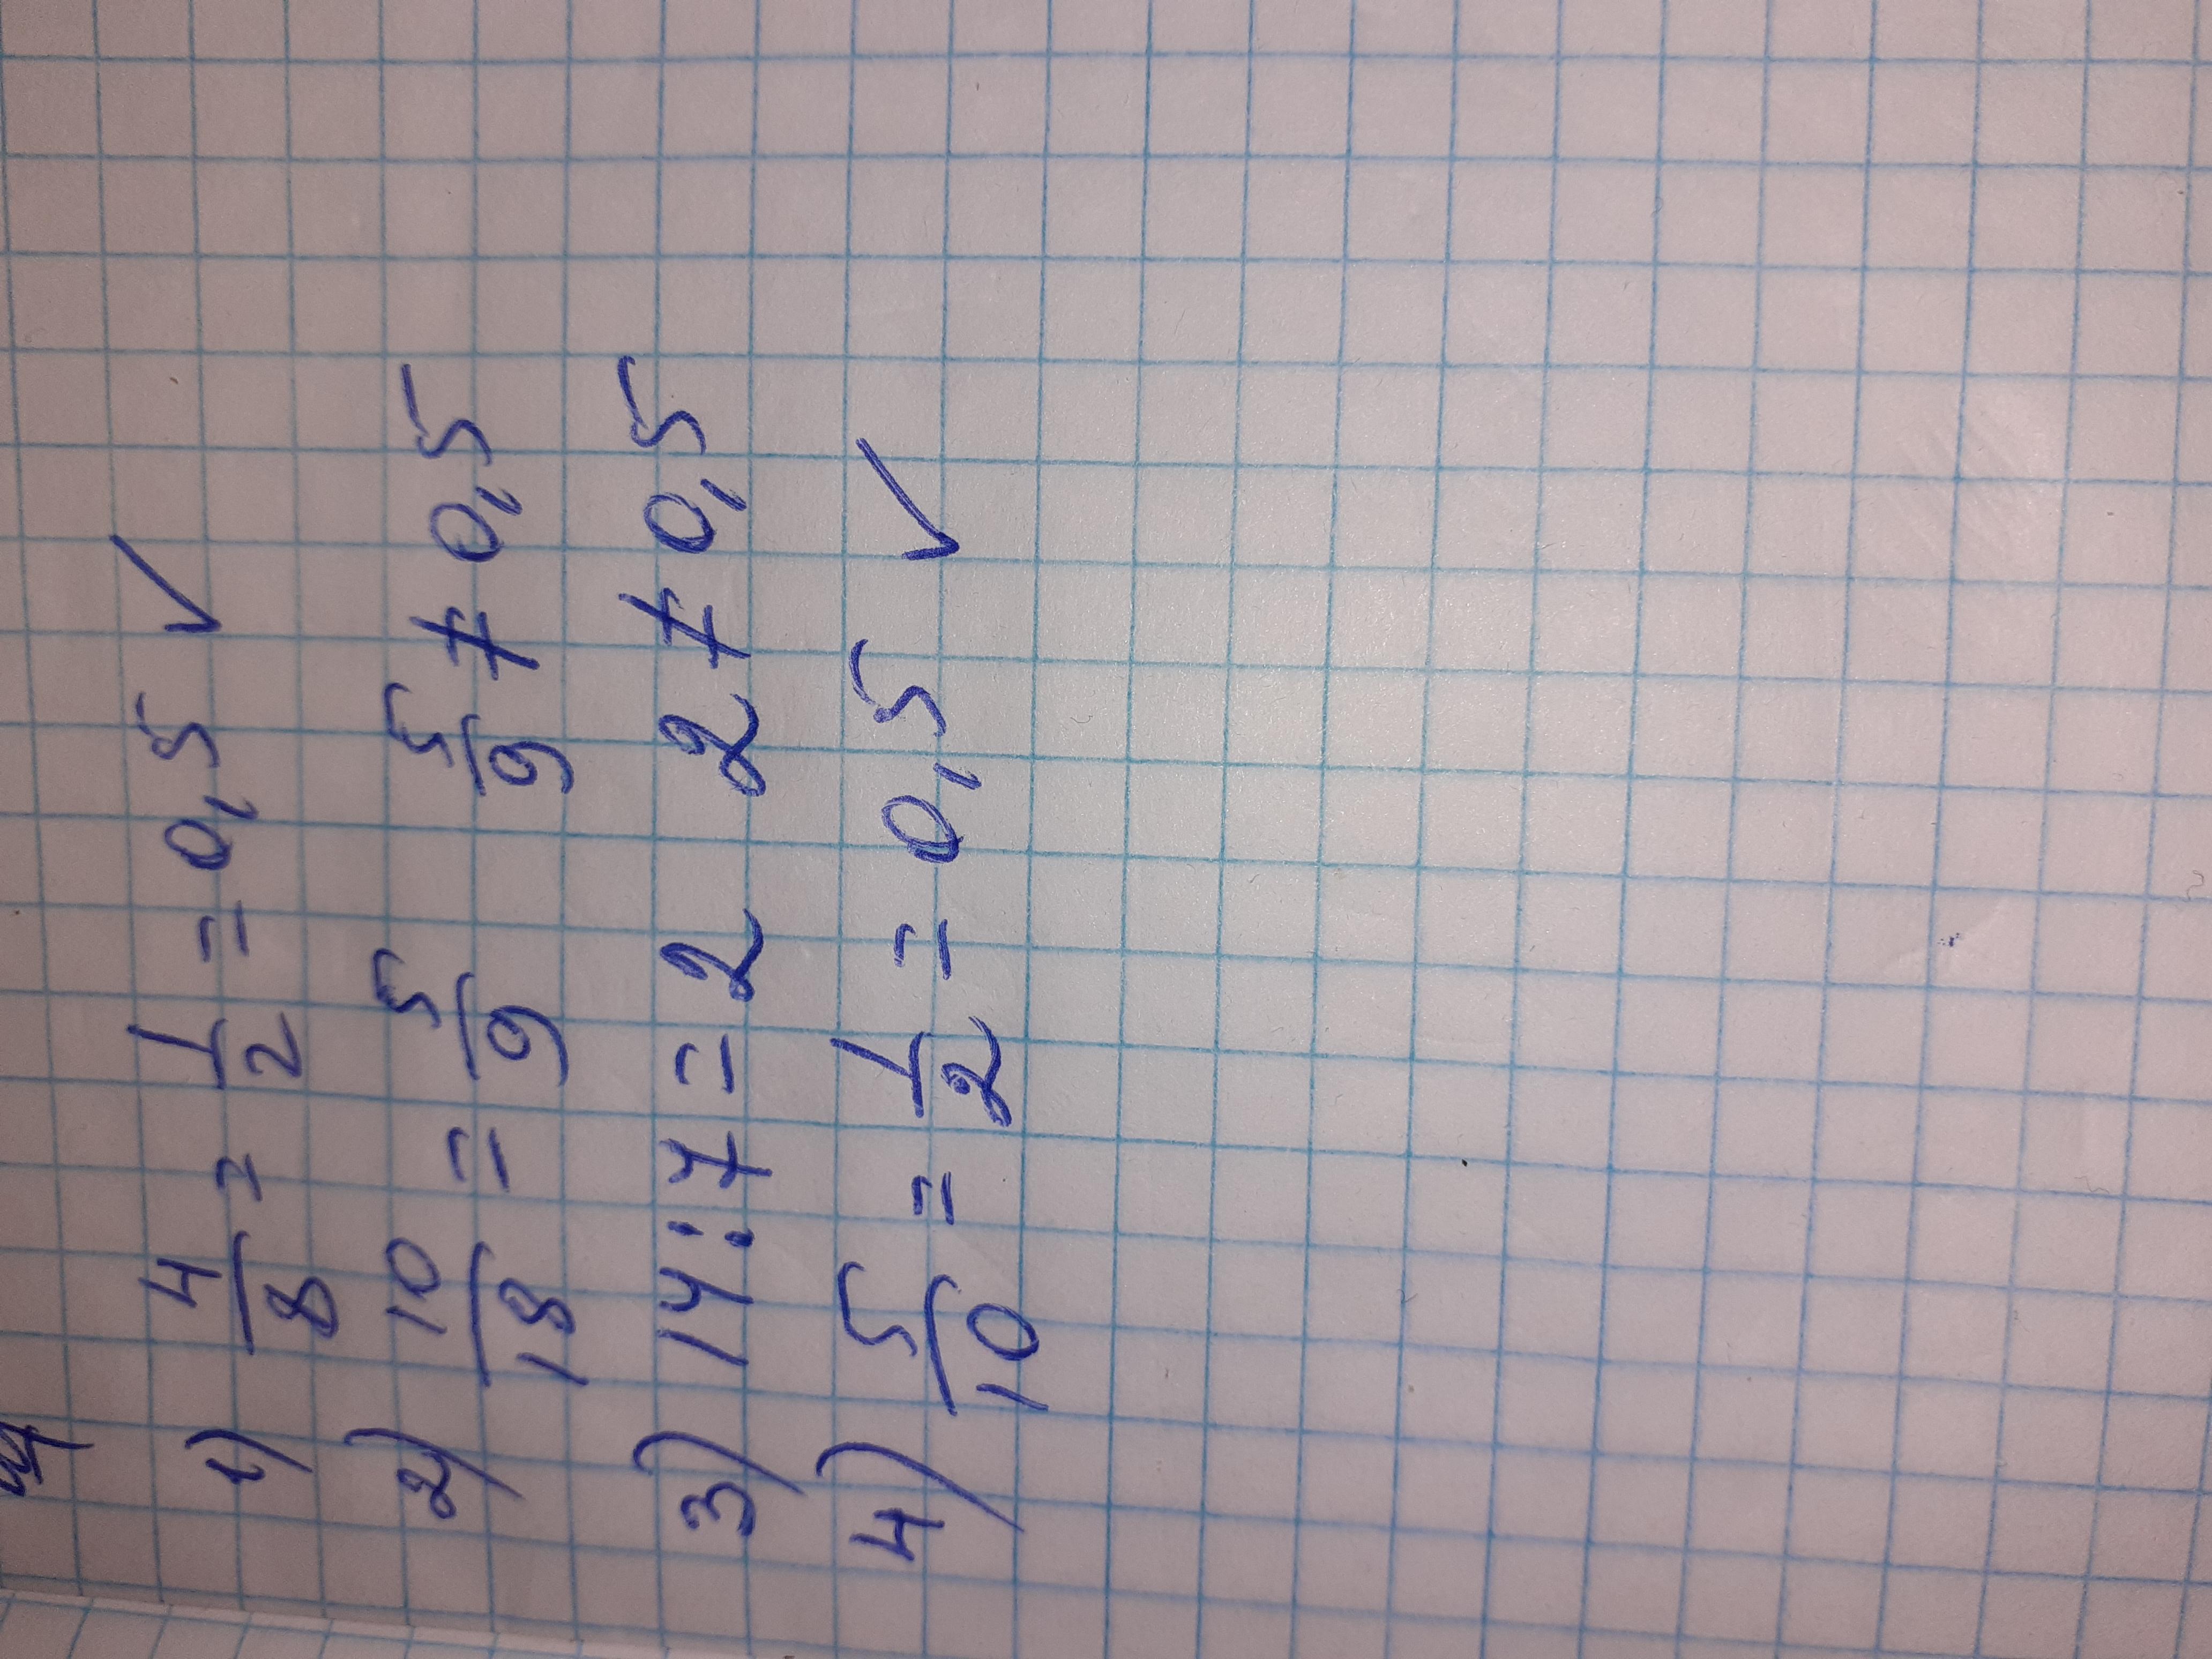 4
1) 4/8 = 1/2 = 0,5 ✓
2) 10/18 = 5/9 5/9 ≠ 0,5
3) 14:7 = 2 2 ≠ 0,5
4) 5/10 = 1/2 = 0,5 ✓